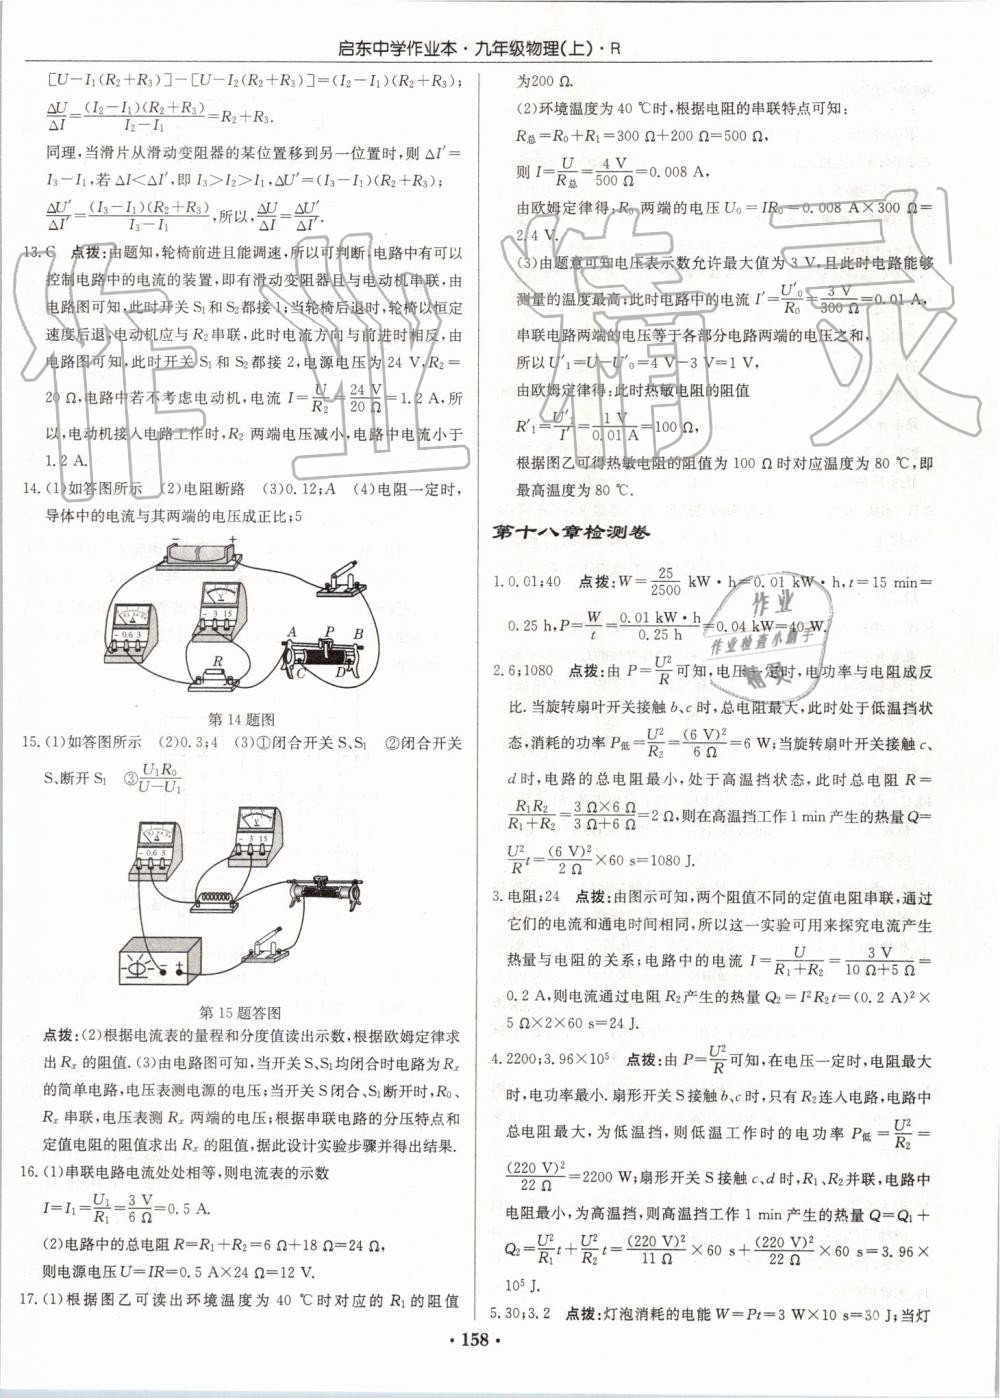 启东中学作业本·九年级物理(上)·R
[U-I₁(R₂+R₃)]-[U-I₂(R₂+R₃)]=(I₂-I₁)(R₂+R₃);
ΔU/ΔI=(I₂-I₁)(R₂+R₃)/(I₂-I₁)=R₂+R₃.
同理,当滑片从滑动变阻器的某位置移到另一位置时,则 ΔI′=
I₃-I₁,若 ΔI<ΔI′,即 I₃>I₂>I₁,ΔU′=(I₃-I₁)(R₂+R₃);
ΔU′/ΔI′=(I₃-I₁)(R₂+R₃)/(I₃-I₁),所以,ΔU/ΔI=ΔU′/ΔI′.
13. C 点拨:由题知,轮椅前进且能调速,所以可判断,电路中有可以
控制电路中的电流的装置,即有滑动变阻器且与电动机串联,由
电路图可知,此时开关 S₁和 S₂都接 1;当轮椅后退时,轮椅以恒定
速度后退,电动机应与 R₂串联,此时电流方向与前进时相反,由
电路图可知,此时开关 S₁ 和 S₂都接 2,电源电压为 24 V,R₂=
20 Ω,电路中若不考虑电动机,电流 I=U/R₂=24 V/20 Ω=1.2 A,所
以,电动机接入电路工作时,R₂ 两端电压减小,电路中电流小于
1.2 A.
14. (1)如答图所示 (2)电阻断路 (3)0.12;A (4)电阻一定时,
导体中的电流与其两端的电压成正比;5
- +
A
V
- 0.6 3
- 3 15
R
A P B
C D
第 14 题图
15. (1)如答图所示 (2)0.3;4 (3)①闭合开关 S、S₁ ②闭合开关
S、断开 S₁ ③U₁R₀/(U-U₁)
A
V
- 0.6 3
- 3 15
- +
第 15 题答图
点拨:(2)根据电流表的量程和分度值读出示数,根据欧姆定律求
出 Rₓ 的阻值.(3)由电路图可知,当开关 S、S₁均闭合时电路为 Rₓ
的简单电路,电压表测电源的电压;当开关 S 闭合、S₁断开时,R₀、
Rₓ 串联,电压表测 Rₓ 两端的电压;根据串联电路的分压特点和
定值电阻的阻值求出 Rₓ 的阻值,据此设计实验步骤并得出结果.
16. (1)串联电路电流处处相等,则电流表的示数
I=I₁=U₁/R₁=3 V/6 Ω=0.5 A.
(2)电路中的总电阻 R=R₁+R₂=6 Ω+18 Ω=24 Ω,
则电源电压 U=IR=0.5 A×24 Ω=12 V.
17. (1)根据图乙可读出环境温度为 40 ℃时对应的 R₁的阻值
为200 Ω.
(2)环境温度为 40 ℃时,根据电阻的串联特点可知:
R总=R₀+R₁=300 Ω+200 Ω=500 Ω,
则 I=U/R总=4 V/500 Ω=0.008 A,
由欧姆定律得:R₀ 两端的电压 U₀=IR₀=0.008 A×300 Ω=
2.4 V.
(3)由题意可知电压表示数允许最大值为 3 V,且此时电路能够
测量的温度最高;此时电路中的电流 I′=U′₀/R₀=3 V/300 Ω=0.01 A,
串联电路两端的电压等于各部分电路两端的电压之和,
所以 U′₁=U-U′₀=4 V-3 V=1 V,
由欧姆定律得:此时热敏电阻的阻值
R′₁=U′₁/I′=1 V/0.01 A=100 Ω,
根据图乙可得热敏电阻的阻值为 100 Ω时对应温度为 80 ℃,即
最高温度为 80 ℃.
第十八章检测卷
1. 0.01;40 点拨:W=25/2500 kW·h=0.01 kW·h,t=15 min=
0.25 h,P=W/t=0.01 kW·h/0.25 h=0.04 kW=40 W.
2. 6;1080 点拨:由 P=U²/R可知,电压一定时,电功率与电阻成反
比.当旋转扇叶开关接触 b、c 时,总电阻最大,此时处于低温挡状
态,消耗的功率 P低=U²/R₂=(6 V)²/6 Ω=6 W;当旋转扇叶开关接触 c、
d 时,电路的总电阻最小,处于高温挡状态,此时总电阻 R=
R₁R₂/(R₁+R₂)=3 Ω×6 Ω/(3 Ω+6 Ω)=2 Ω,则在高温挡工作 1 min 产生的热量 Q=
U²/R t=(6 V)²/2 Ω×60 s=1080 J.
3. 电阻;24 点拨:由图示可知,两个阻值不同的定值电阻串联,通过
它们的电流和通电时间相同,所以这一实验可用来探究电流产生
热量与电阻的关系;电路中的电流 I=U/(R₁+R₂)=3 V/(10 Ω+5 Ω)=
0.2 A,则电流通过电阻 R₂产生的热量 Q₂=I²R₂t=(0.2 A)²×
5 Ω×2×60 s=24 J.
4. 2200;3.96×10⁵ 点拨:由 P=U²/R可知,在电压一定时,电阻最大
时,电功率最小.扇形开关 S 接触 b、c 时,只有 R₂连入电路,电路中
总电阻最大,为低温挡,则低温工作时的电功率 P低=U²/R₂=
(220 V)²/22 Ω=2200 W;扇形开关 S 接触 c、d 时,R₁、R₂并联,电路中
电阻最小,为高温挡,则高温挡工作 1 min 产生的热量 Q=Q₁+
Q₂=U²/R₁ t+U²/R₂ t=(220 V)²/11 Ω×60 s+(220 V)²/22 Ω×60 s=3.96×
10⁵ J.
5. 30;3.2 点拨:灯泡消耗的电能 W=Pt=3 W×10 s=30 J;当灯
·158·
作业精灵
作业
作业检查小助手
精灵